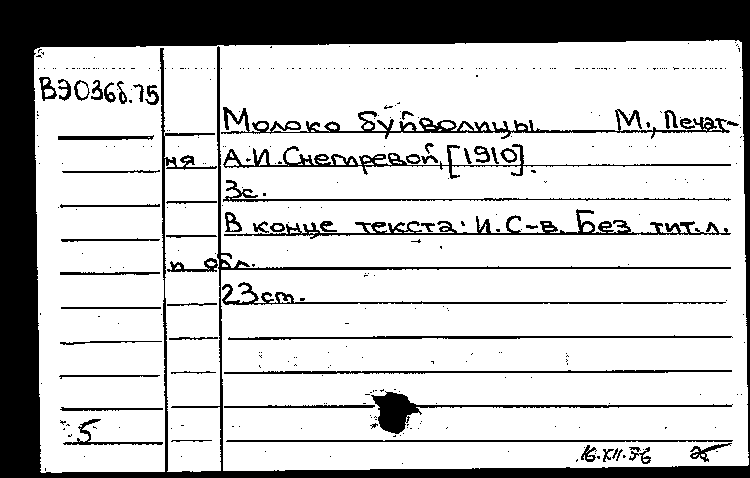 ВЭ036б.75
Молоко буйволицы М., Печат-
ня А.И.Снегиревой, [1910].
3с.
В конце текста: И.С-в. Без тит.л.
и обл.
23ст.
5
16.XII.56